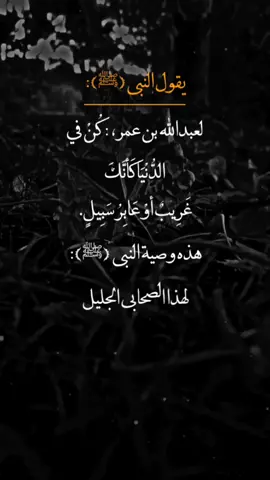 يقول النبي (ﷺ):
لعبدالله بن عمر، : كُنْ في
الدُّنْيَا كَأَنَّكَ
غَرِيبٌ أَوْ عَابِرُ سَبِيلٍ.
هذه وصية النبي (ﷺ):
لهذا الصحابي الجليل